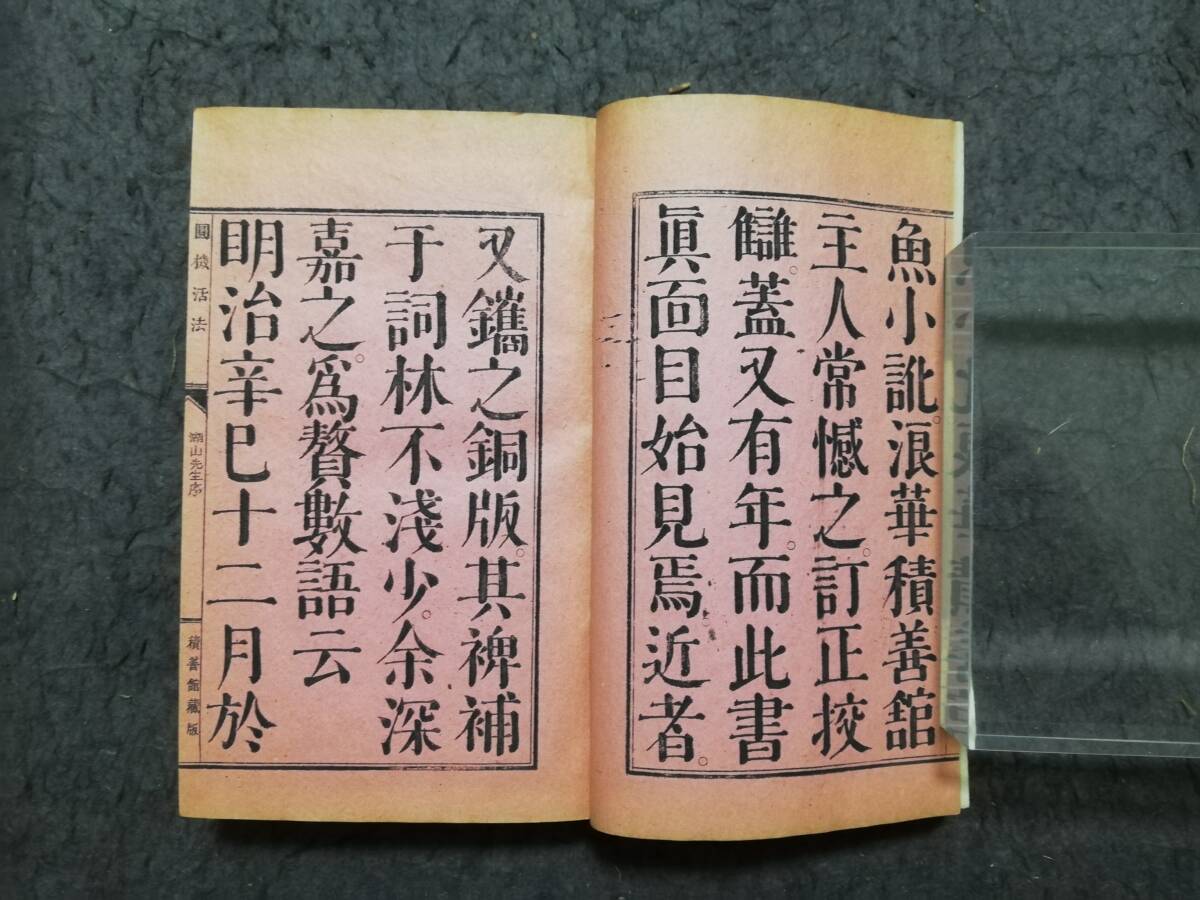 魚小訛。浪華積善舘
主人常憾之。訂正挍
讎。蓋又有年。而此書
眞面目始見焉近者。
又鑴之銅版。其裨補
于詞林不淺少。余深
嘉之。爲贅數語云
明治辛巳十二月於
圓機活法
湖山先生序
積善舘藏版